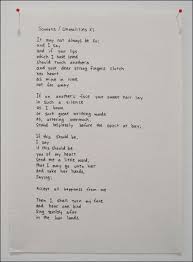 Sonnets / Unrealities XI
It may not always be so;
and I say
and if your lips
which I have loved
should touch another's
and your dear strong fingers clutch
heart
as mine in time
not far away
If on another's face your sweet hair lay
in such a silence
as I know
or such great writhing words
as, uttering overmuch,
Stand helplessly before the spirit at bay;
If this should be,
I say
if this should be
you of my heart
Send me a little word,
that I may go unto
and take hands,
Saying:
Accept all happiness from me
Then I shall turn my face
and hear one bird
Sing terribly afar
in the lost lands